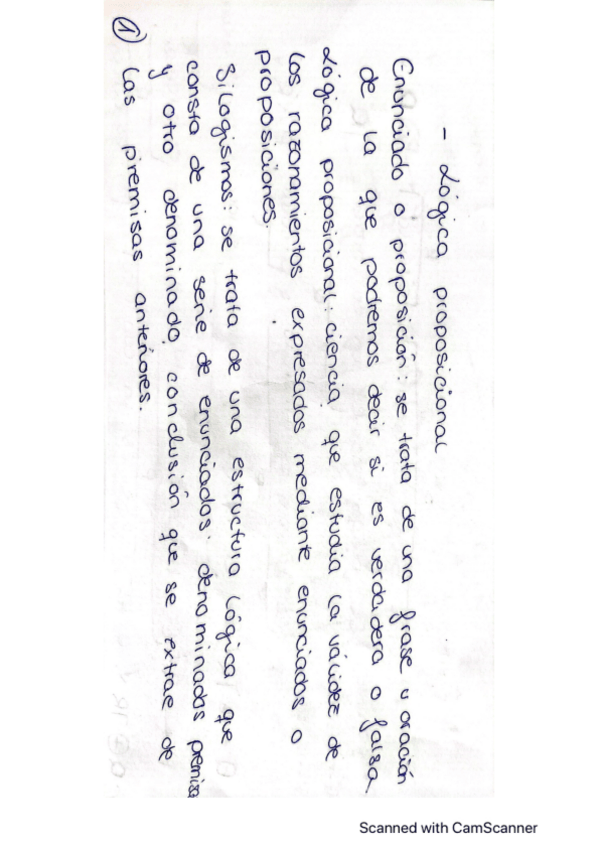 - Lógica proposicional
Enunciado o proposición: se trata de una frase u oración
de la que podremos decir si es verdadera o falsa
Lógica proposicional: ciencia que estudia la válidez de
los razonamientos expresados mediante enunciados o
proposiciones.
Silogismos: se trata de una estructura lógica que
consta de una serie de enunciados denominados premisa
y otro denominado conclusión que se extrae de
las premisas anteriores.
1
Scanned with CamScanner